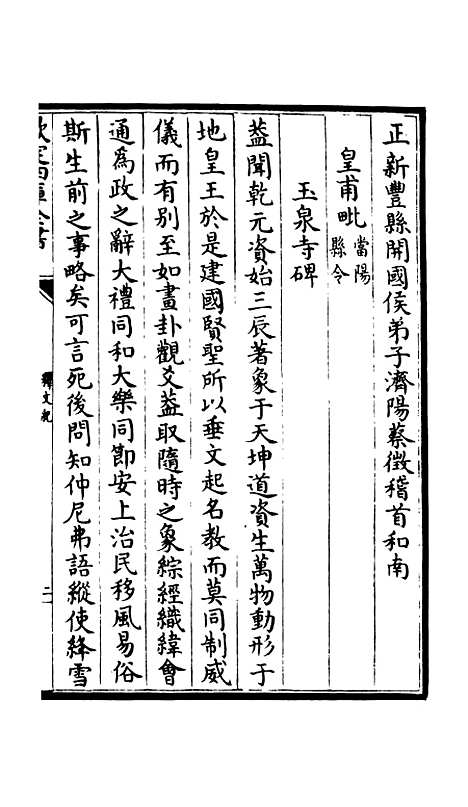 正新豐縣開國侯弟子濟陽蔡徴稽首和南
皇甫毗當陽
縣令
玉泉寺碑
葢聞乾元資始三辰著象于天坤道資生萬物動形于
地皇王於是建國賢聖所以垂文起名教而莫同制威
儀而有别至如畫卦觀爻葢取隨時之象綜經織緯會
通為政之辭大禮同和大樂同節安上治民移風易俗
斯生前之事略矣可言死後問知仲尼弗語縱使絳雪
欽定四庫全書
釋文紀